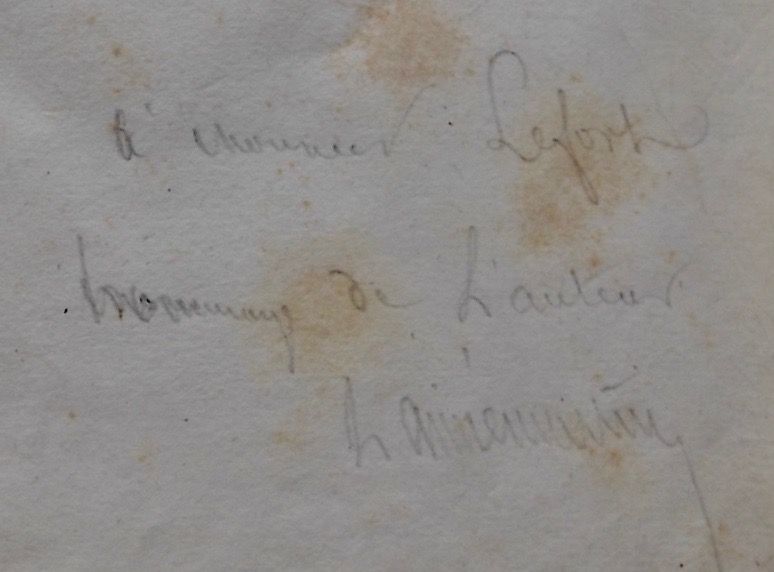 à monsieur Lefort
hommage de L'auteur